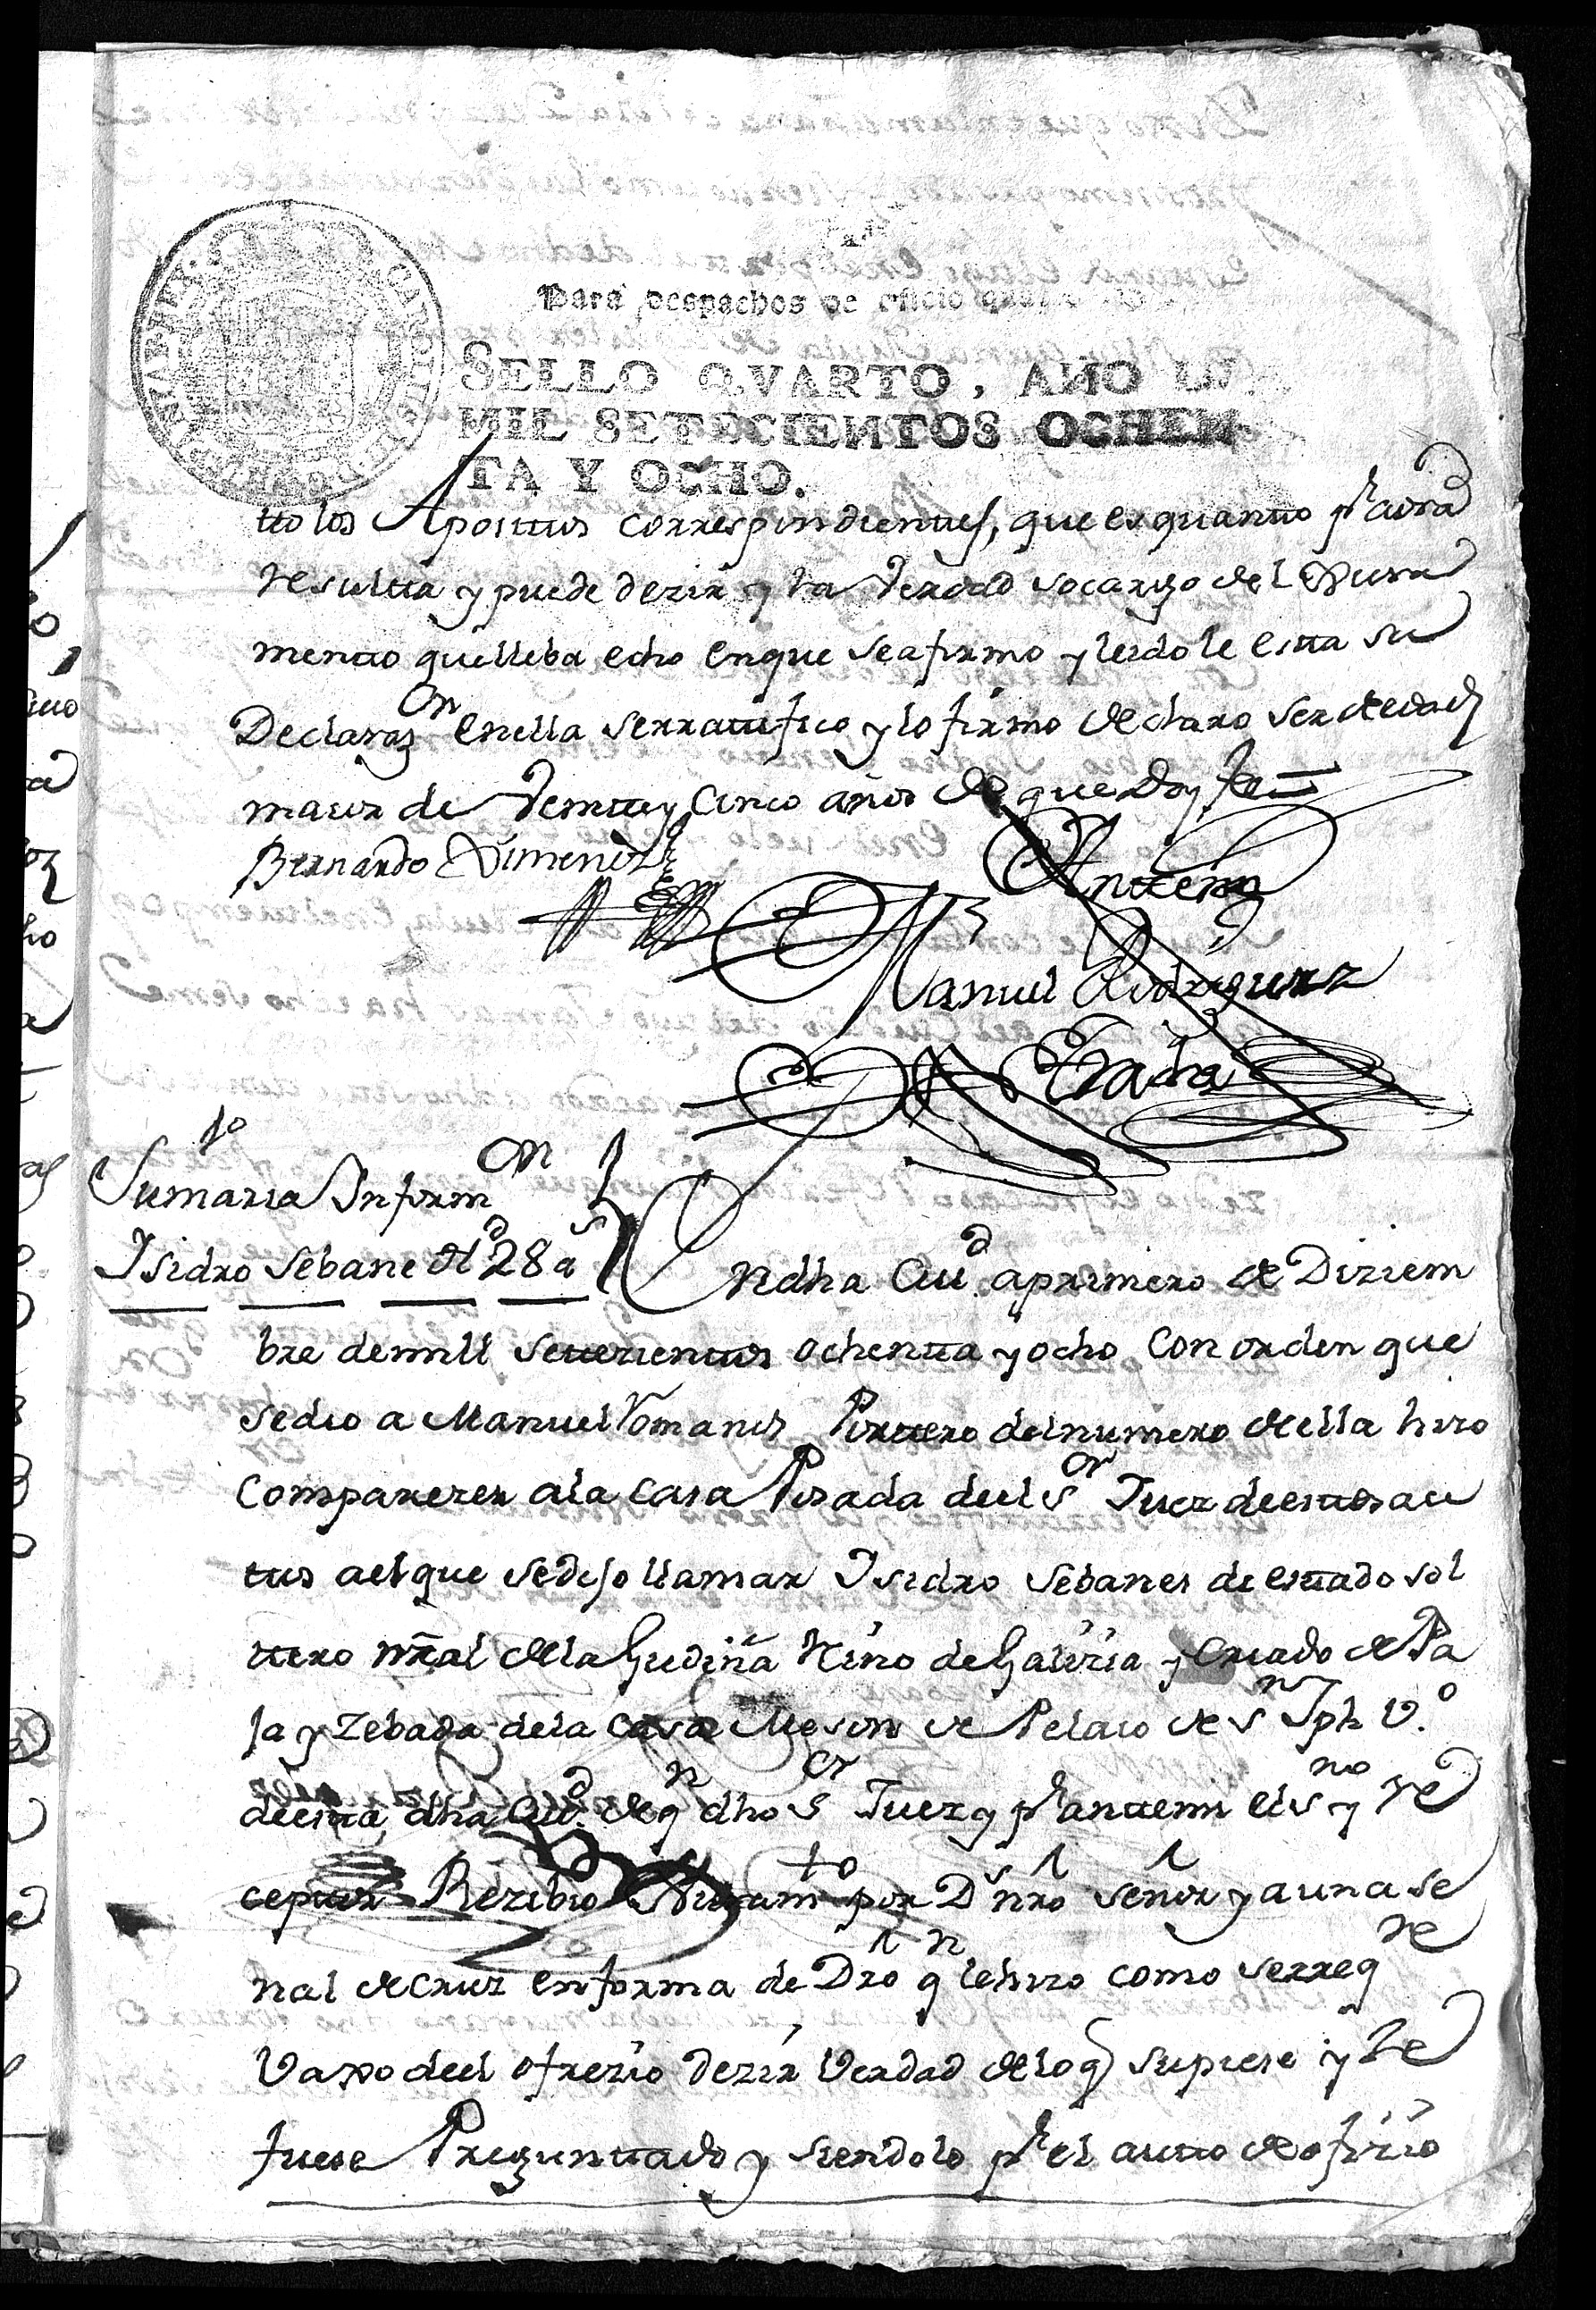 Para despachos de oficio
SELLO QVARTO, AÑO D
MIL SETECIENTOS OCHEN
TA Y OCHO.
tto los Aposttos correspondienttes, que es quantto pr aora
resultta y puede dezir y la Verdad so cargo del Xura
mentto que lleba echo en que se afirmo y leido le estta su
Declarazon en ella se rrattifico y lo firmo declaro ser de edad
maior de Veintte y Cinco años de que Doy fee
Bernardo Ximenez
Antte mi
Manuel Rodriguez
Sumaria Informon
1o
Isidro Sebane de 28 as
En dha Ciud a primero de Diziem
bre de mill settezienttos ochentta y ocho Con orden que
se dio a Manuel Romanos Porttero del numero de ella hizo
Comparezer a la Casa Posada de el Sor Juez de esttos au
ttos a el que se dijo llamar Isidro Sebanes de esttado sol
ttero nral de la Gudiña Reino de Galizia y Criado de Pa
ja y Zebada de la Casa Meson de Pelaio de Sn Jph V.o
de estta dha Ciud. de qn dho Sor Juez y pr antte mi el Sno y Re
cepttor Rezibio Juramto por Ds nro Señor y a una se
ñal de Cruz en forma de Dro qn le hizo como se rreqre
Vaxo de el ofrezio dezir Verdad de lo q supiese y le
fuese Preguntado y siendolo pr el autto de ofizio